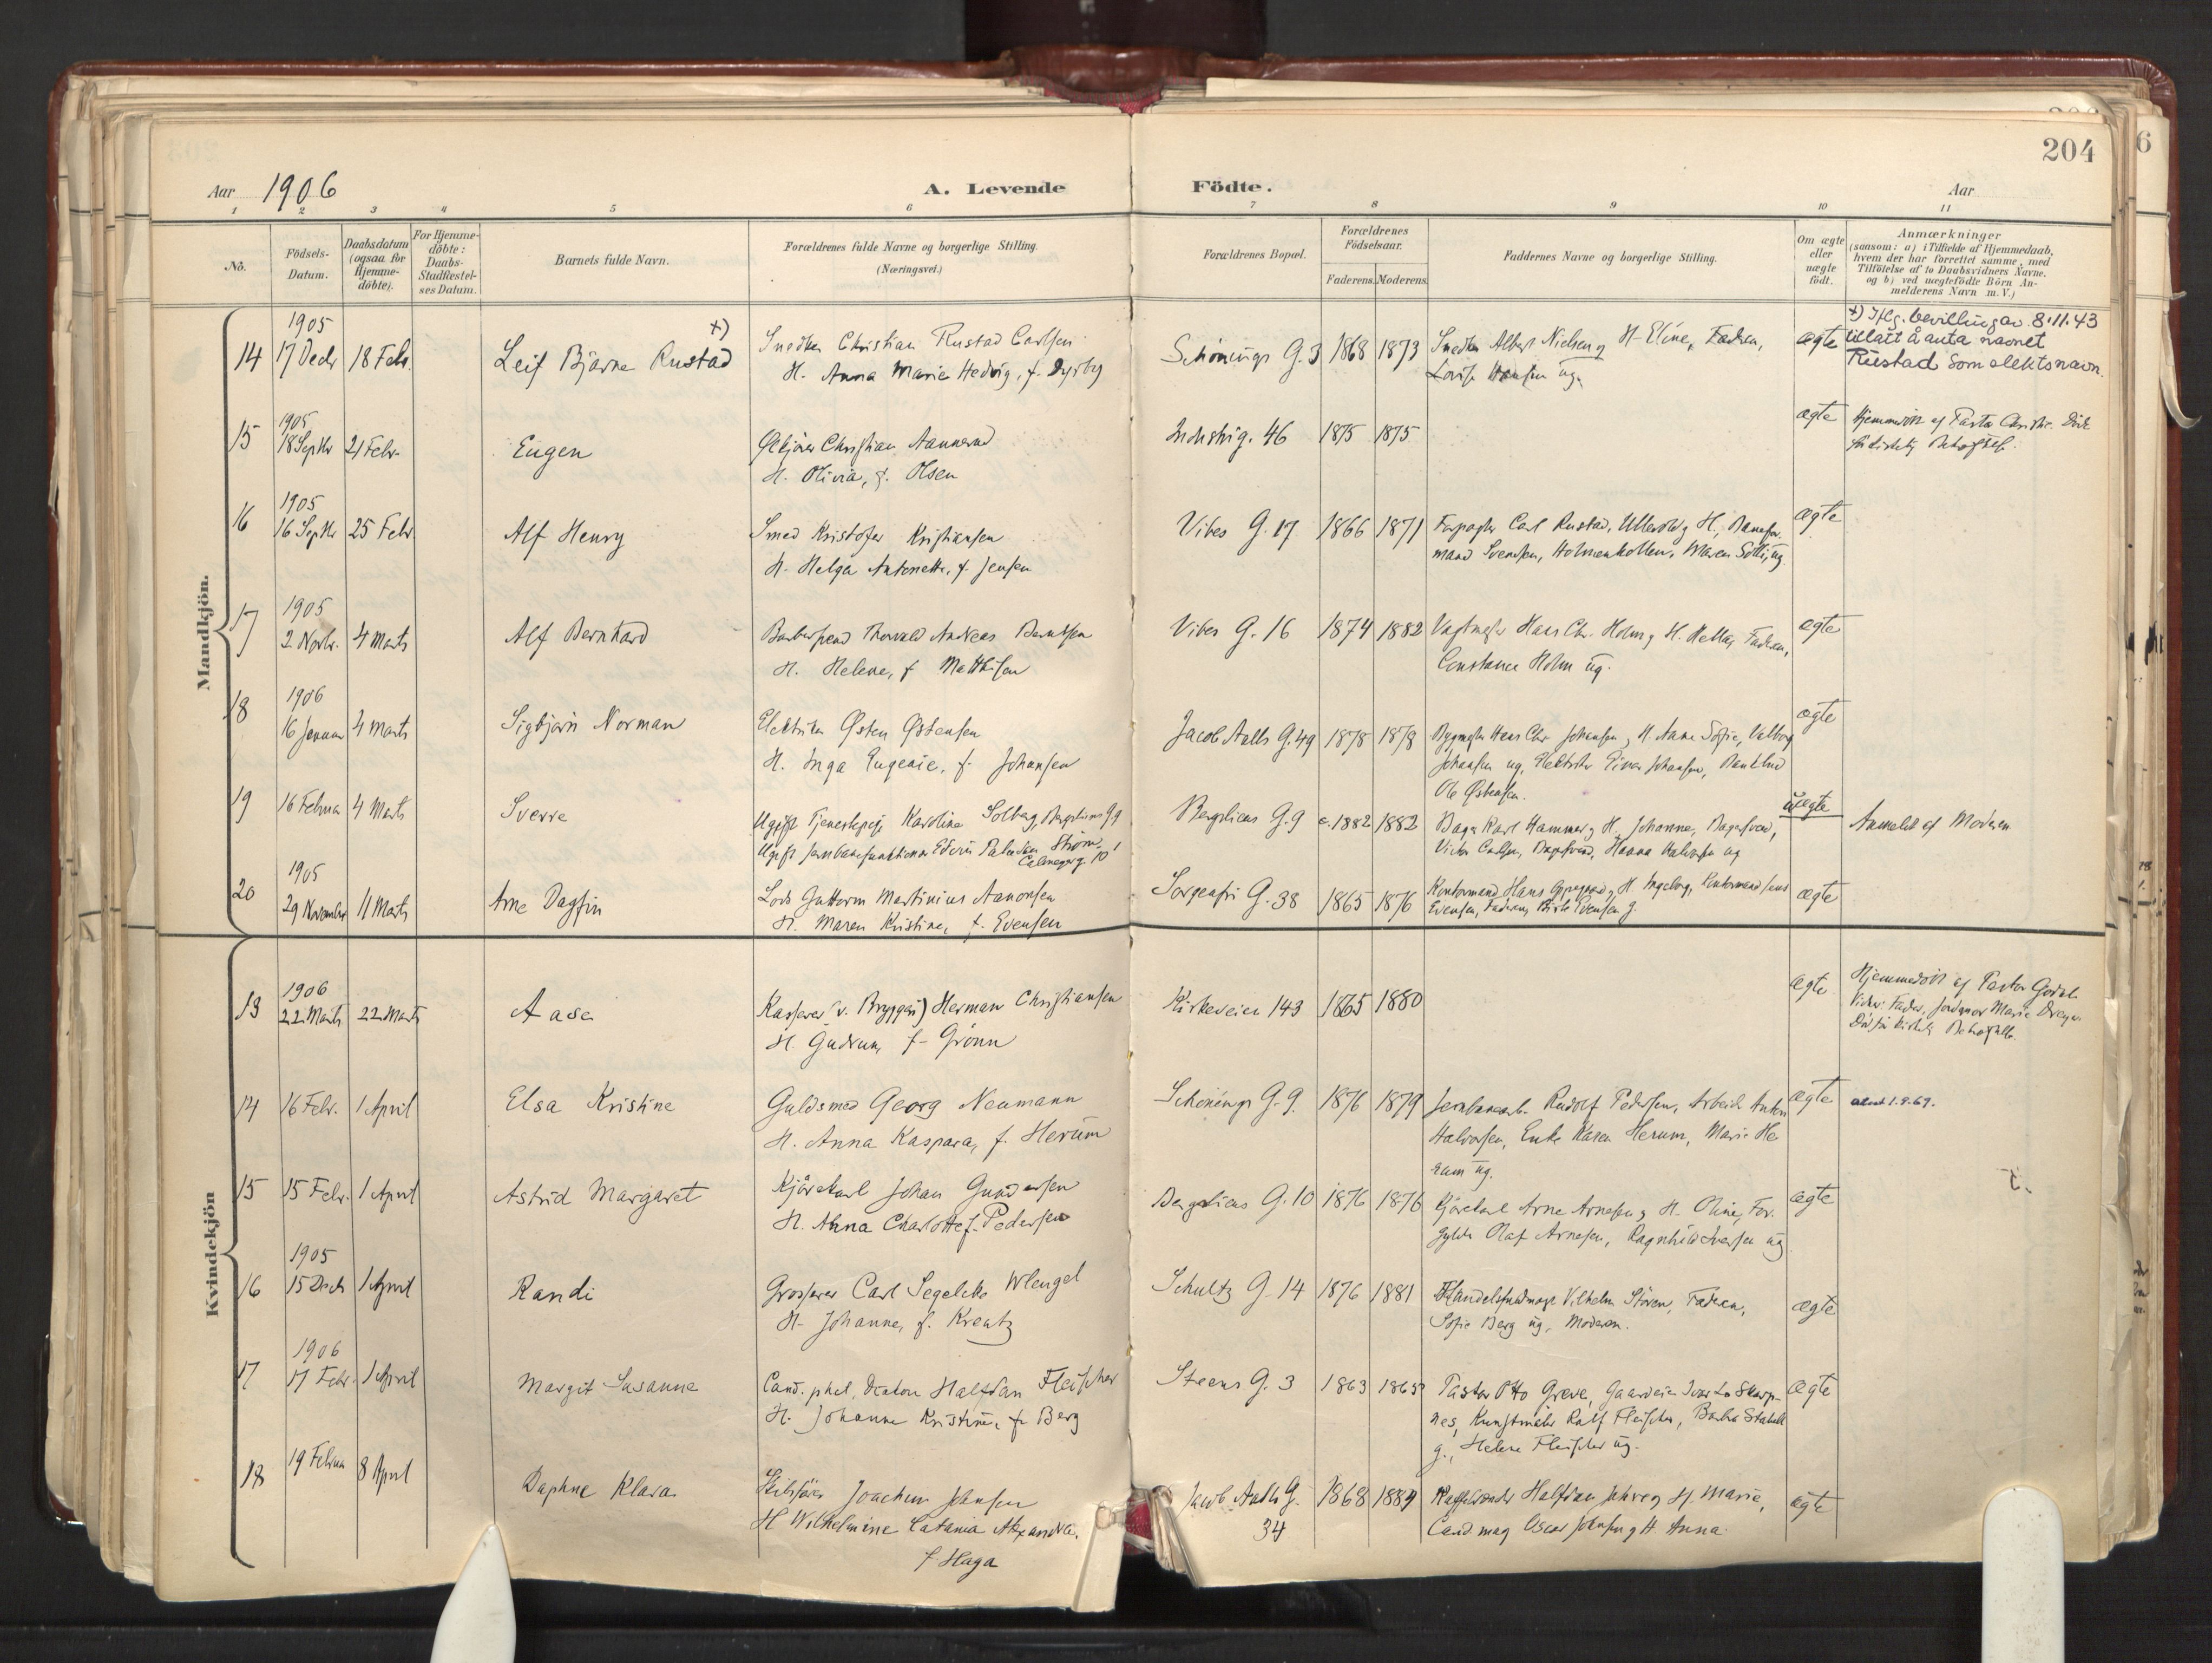 204
Aar 1906 A. Levende Födte. Aar
1 2 3 4 5 6 7 8 9 10 11
No.
Födsels-
Datum.
Daabsdatum
(ogsaa for
Hjemme-
döbte).
For Hjemme-
döbte:
Daabs-
Stadfæstel-
ses Datum.
Barnets fulde Navn.
Forældrenes fulde Navne og borgerlige Stilling.
(Næringsvei.)
Forældrenes Bopæl.
Forældrenes
Födselsaar.
Faderens. Moderens.
Faddernes Navne og borgerlige Stilling.
Om ægte
eller
uægte
födt.
Anmærkninger
(saasom: a) i Tilfælde af Hjemmedaab,
hvem der har forrettet samme, med
Tilföielse af to Daabsvidners Navne,
og b) ved uægtefödte Börn An-
melderens Navn m. V.)
Mandkjön.
14 1905 17 Decbr 18 Febr. Leif Bjarne Rustad +)
Snedker Christian Rustad Carlsen
H. Anna Marie Hedvig, f. Dyrby
Schönings G. 3 1868 1873
Snedker Albert Nielsen og H. Eline, Faderen,
Lovise Hansen ug.
ægte
+) Iflg. bevilling av 8.11.43
tillatt å anta navnet
Rustad som slektsnavn.
15 1905 18 Septbr 21 Febr. Eugen
Christian Aannerud
H. Olivia, f. Olsen
Industrig. 46 1875 1875
ægte
Hjemmedöbt af Pastor Christie. Död
för kirkelig Bekræftelse.
16 1905 16 Septbr 25 Febr. Alf Henry
Smed Kristofer Kristiansen
H. Helga Antonette, f. Jensen
Vibes G. 17 1866 1871
Forpagter Carl Rustad, Ullevold og H.,
mand Svendsen, Holmenkollen, Maren ug.
ægte
17 1905 2 Novbr. 4 Marts Alf Bernhard
Barbersvend Thorvald Andreas Berntsen
H. Helene, f. Matthisen
Vibes G. 16 1874 1882
Vagtmester Hans Chr. Holm og H. Faderen,
Constance Holm ug.
ægte
18 1906 16 Januar 4 Marts Sigbjörn Norman
Elektriker Østen Østensen
H. Inga Eugenie, f. Johansen
Jacob Aalls G. 49 1878 1878
Bygmester Hans Chr. Johansen og H. Anne Sofie, Valborg
Johansen ug, Elektriker Einar Johansen,
Ole Østensen.
ægte
19 16 Februar 4 Marts Sverre
Ugift Tjenestepige Karoline Solberg, Bergliens G. 9
Ugift Jernbanefunktionær Edvin Ström,
Bergliens G. 9 c. 1882 1882
Bager Karl Hammer og H. Johanne, Bagersvend
Victor Carlsen, Bagersvend, Hanna Halvorsen ug
uægte
Anmeldt af Moderen
20 1905 29 November 11 Marts Arne Dagfin
Lods Guttorm Martinius Aanonsen
H. Maren Kristine, f. Evensen
Sorgenfri G. 38 1865 1876
Kontormand Hans og H. Ingeborg, Kontormand Jens
Evensen, Faderen, Evensen g.
ægte
Kvindekjön
13 1906 22 Marts 22 Marts Aase
Kasserer (v. Bryggeri) Herman Christiansen
H. Gudrun, f. Grönn
Kirkeveien 143 1865 1880
ægte
Hjemmedöbt af Pastor
Vidner: Fader, Jordmor Marie Dreyer
Död för kirkelig Bekræftelse.
14 16 Febr. 1 April Elsa Kristine
Guldsmed Georg Neumann
H. Anna Kaspara, f. Herum
Schönings G. 9. 1876 1879
Jernbanearb. Rudolf Pedersen, Arbeider Anton
Halvorsen, Enke Karen Herum, Marie He-
rum ug.
ægte
1.9.69.
15 15 Febr. 1 April Astrid Margaret
Kjörekarl Johan Gundersen
H. Anna Charlotte f. Pedersen
Bergliens G. 10 1876 1876
Kjörekarl Arne Arnesen og H. Oline, For-
gylder Olaf Arnesen, Ragnhild Iversen ug
ægte
16 1905 15 Decbr 1 April Randi
Grosserer Carl Segelcke Wlengel
H. Johanne, f. Kreutz
Schultz G. 14 1876 1881
Handelsfuldmægt. Vilhelm Stören, Faderen,
Sofie Berg ug, Moderen.
ægte
17 1906 17 Febr. 1 April Margit Susanne
Cand. phil. Halfdan Fleischer
H. Johanne Kristine, f. Berg
Steens G. 3 1863 1865
Pastor Otto Greve, Gaardeier Ivar Lo Skarp-
nes, Kunstmaler Rolf Fleischer,
g., Helene Fleischer ug.
ægte
18 19 Februar 8 April Daphne Klara
Skibsförer Joachim Johnsen
H. Wilhelmine Catania Alexandra,
f. Haga
Jacob Aalls G.
34 1868 1884
Halfdan og H. Marie,
Cand. mag Oscar Johnsen og H. Anna.
ægte